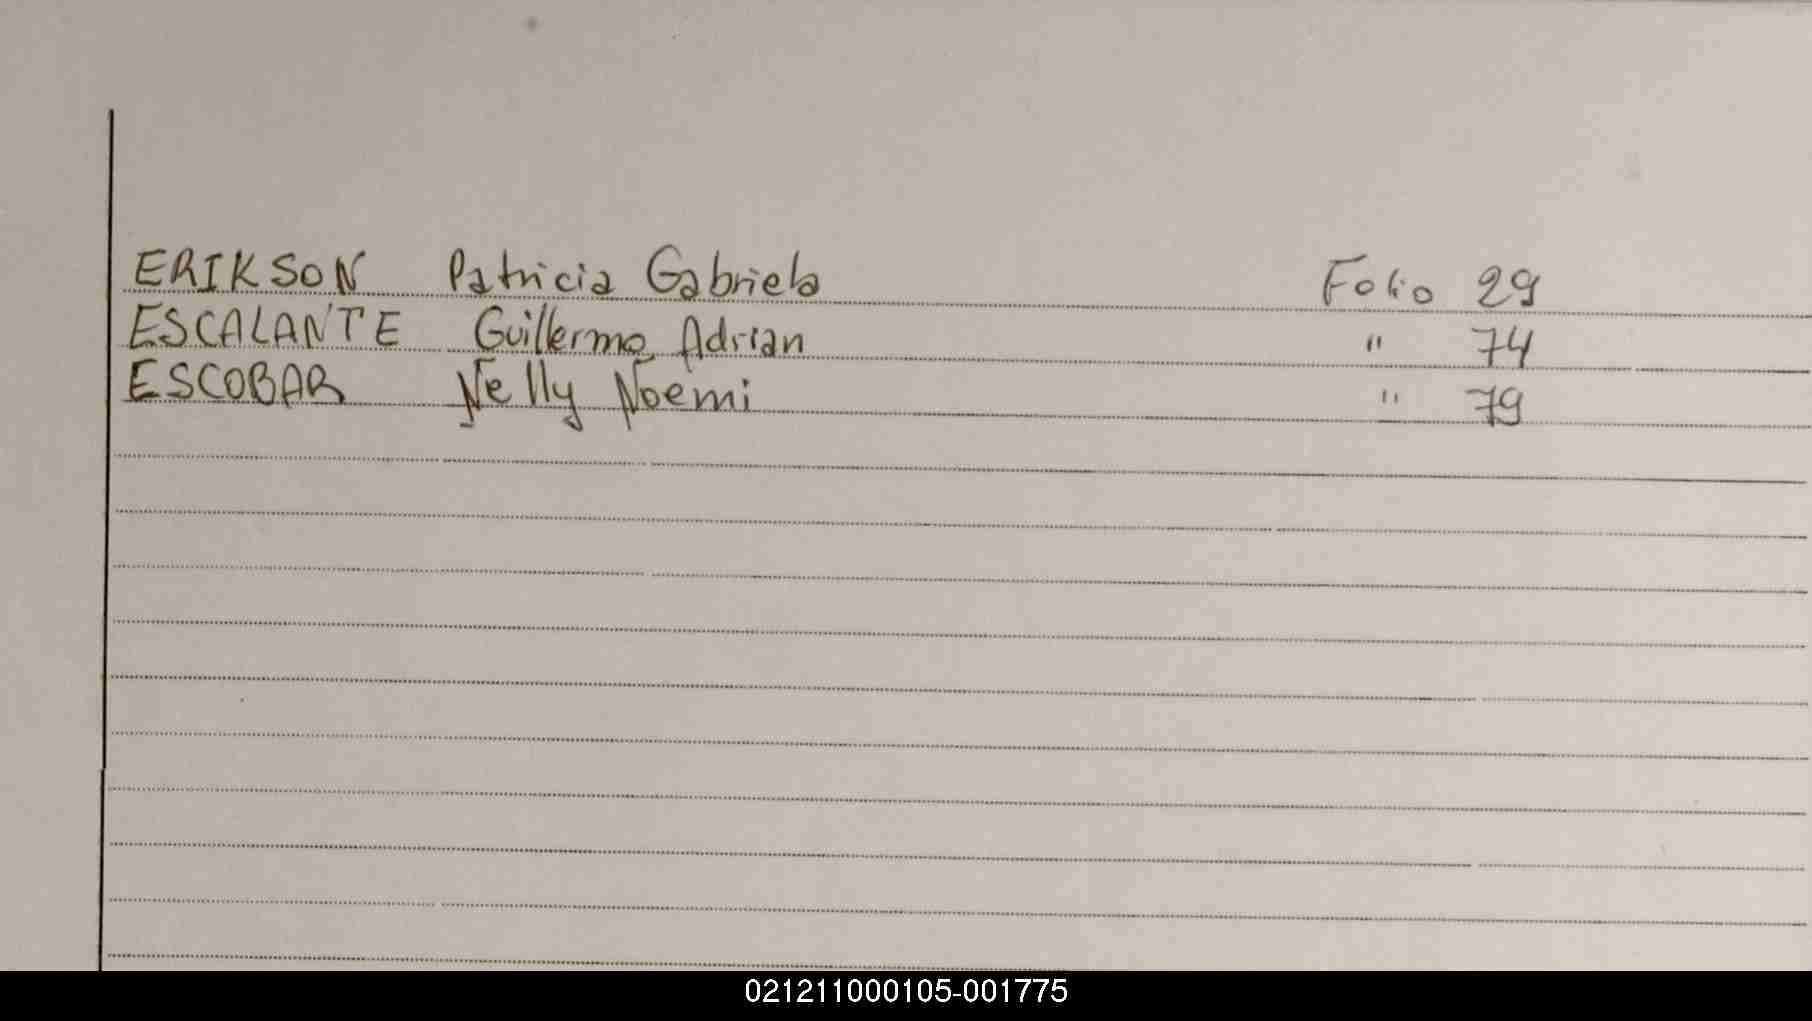 ERIKSON Patricia Gabriela Folio 29
ESCALANTE Guillermo Adrian " 74
ESCOBAR Nelly Noemi " 79
021211000105-001775